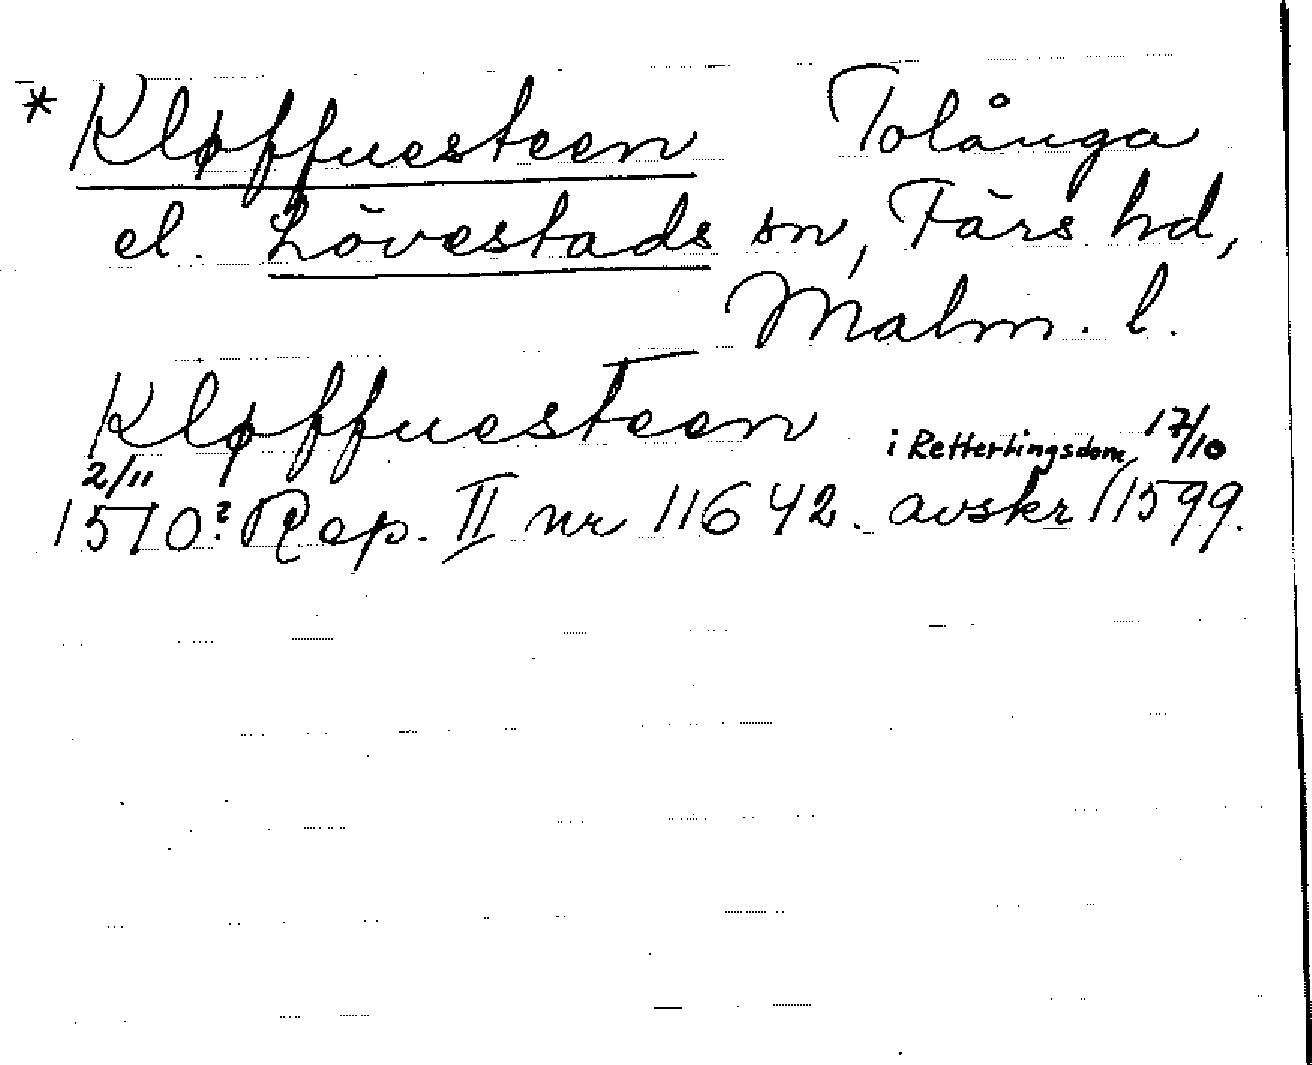 * Kløffuesteen Tolånga
el. Lövestads sn, Färs hd,
Malm. l.
Kløffuesteen
2/11 i Rettertingsdom 17/10
1510? Rep. II nr 11642. avskr 1599.